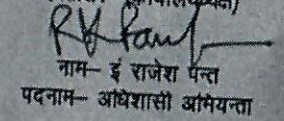 नाम– इं राजेश पन्त
पदनाम– अधिशासी अभियन्ता